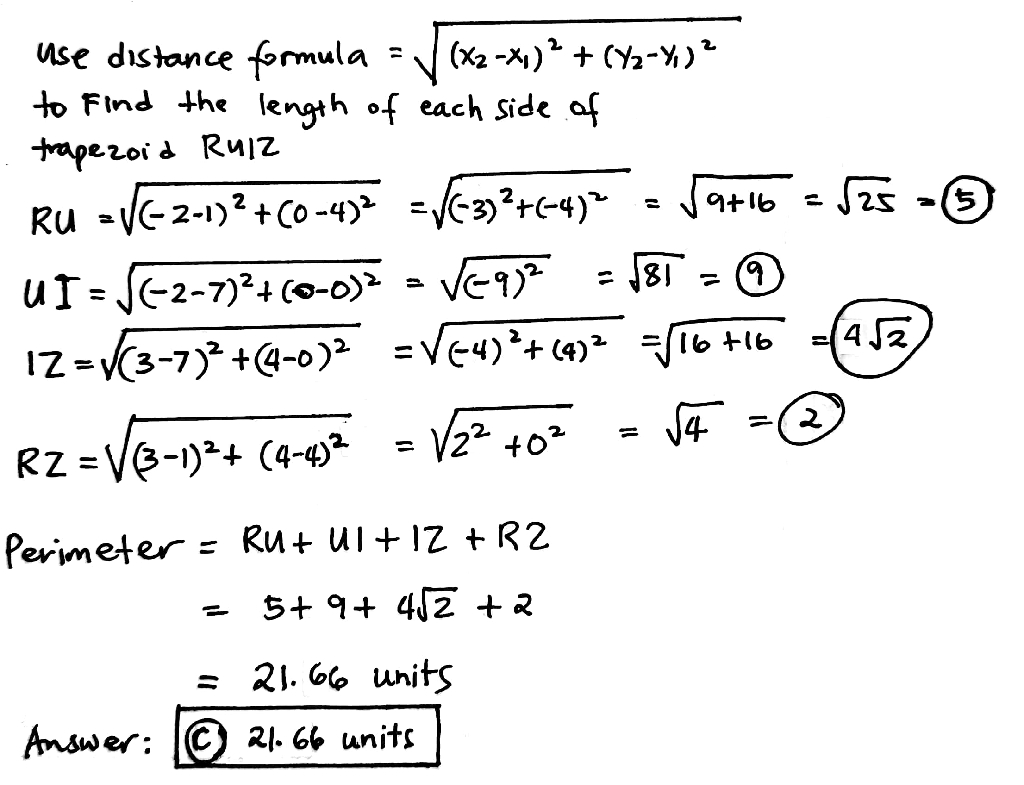 use distance formula = √(x₂-x₁)² + (y₂-y₁)²
to Find the length of each side of
trapezoid RUIZ
RU = √(-2-1)² + (0-4)² = √(-3)²+(-4)² = √9+16 = √25 = 5
UI = √(-2-7)²+(0-0)² = √(-9)² = √81 = 9
IZ = √(3-7)² + (4-0)² = √(-4)²+(4)² = √16+16 = 4√2
RZ = √(3-1)²+ (4-4)² = √2² +0² = √4 = 2
Perimeter = RU + UI + IZ + RZ
= 5+ 9+ 4√2 + 2
= 21.66 units
Answer: C 21.66 units